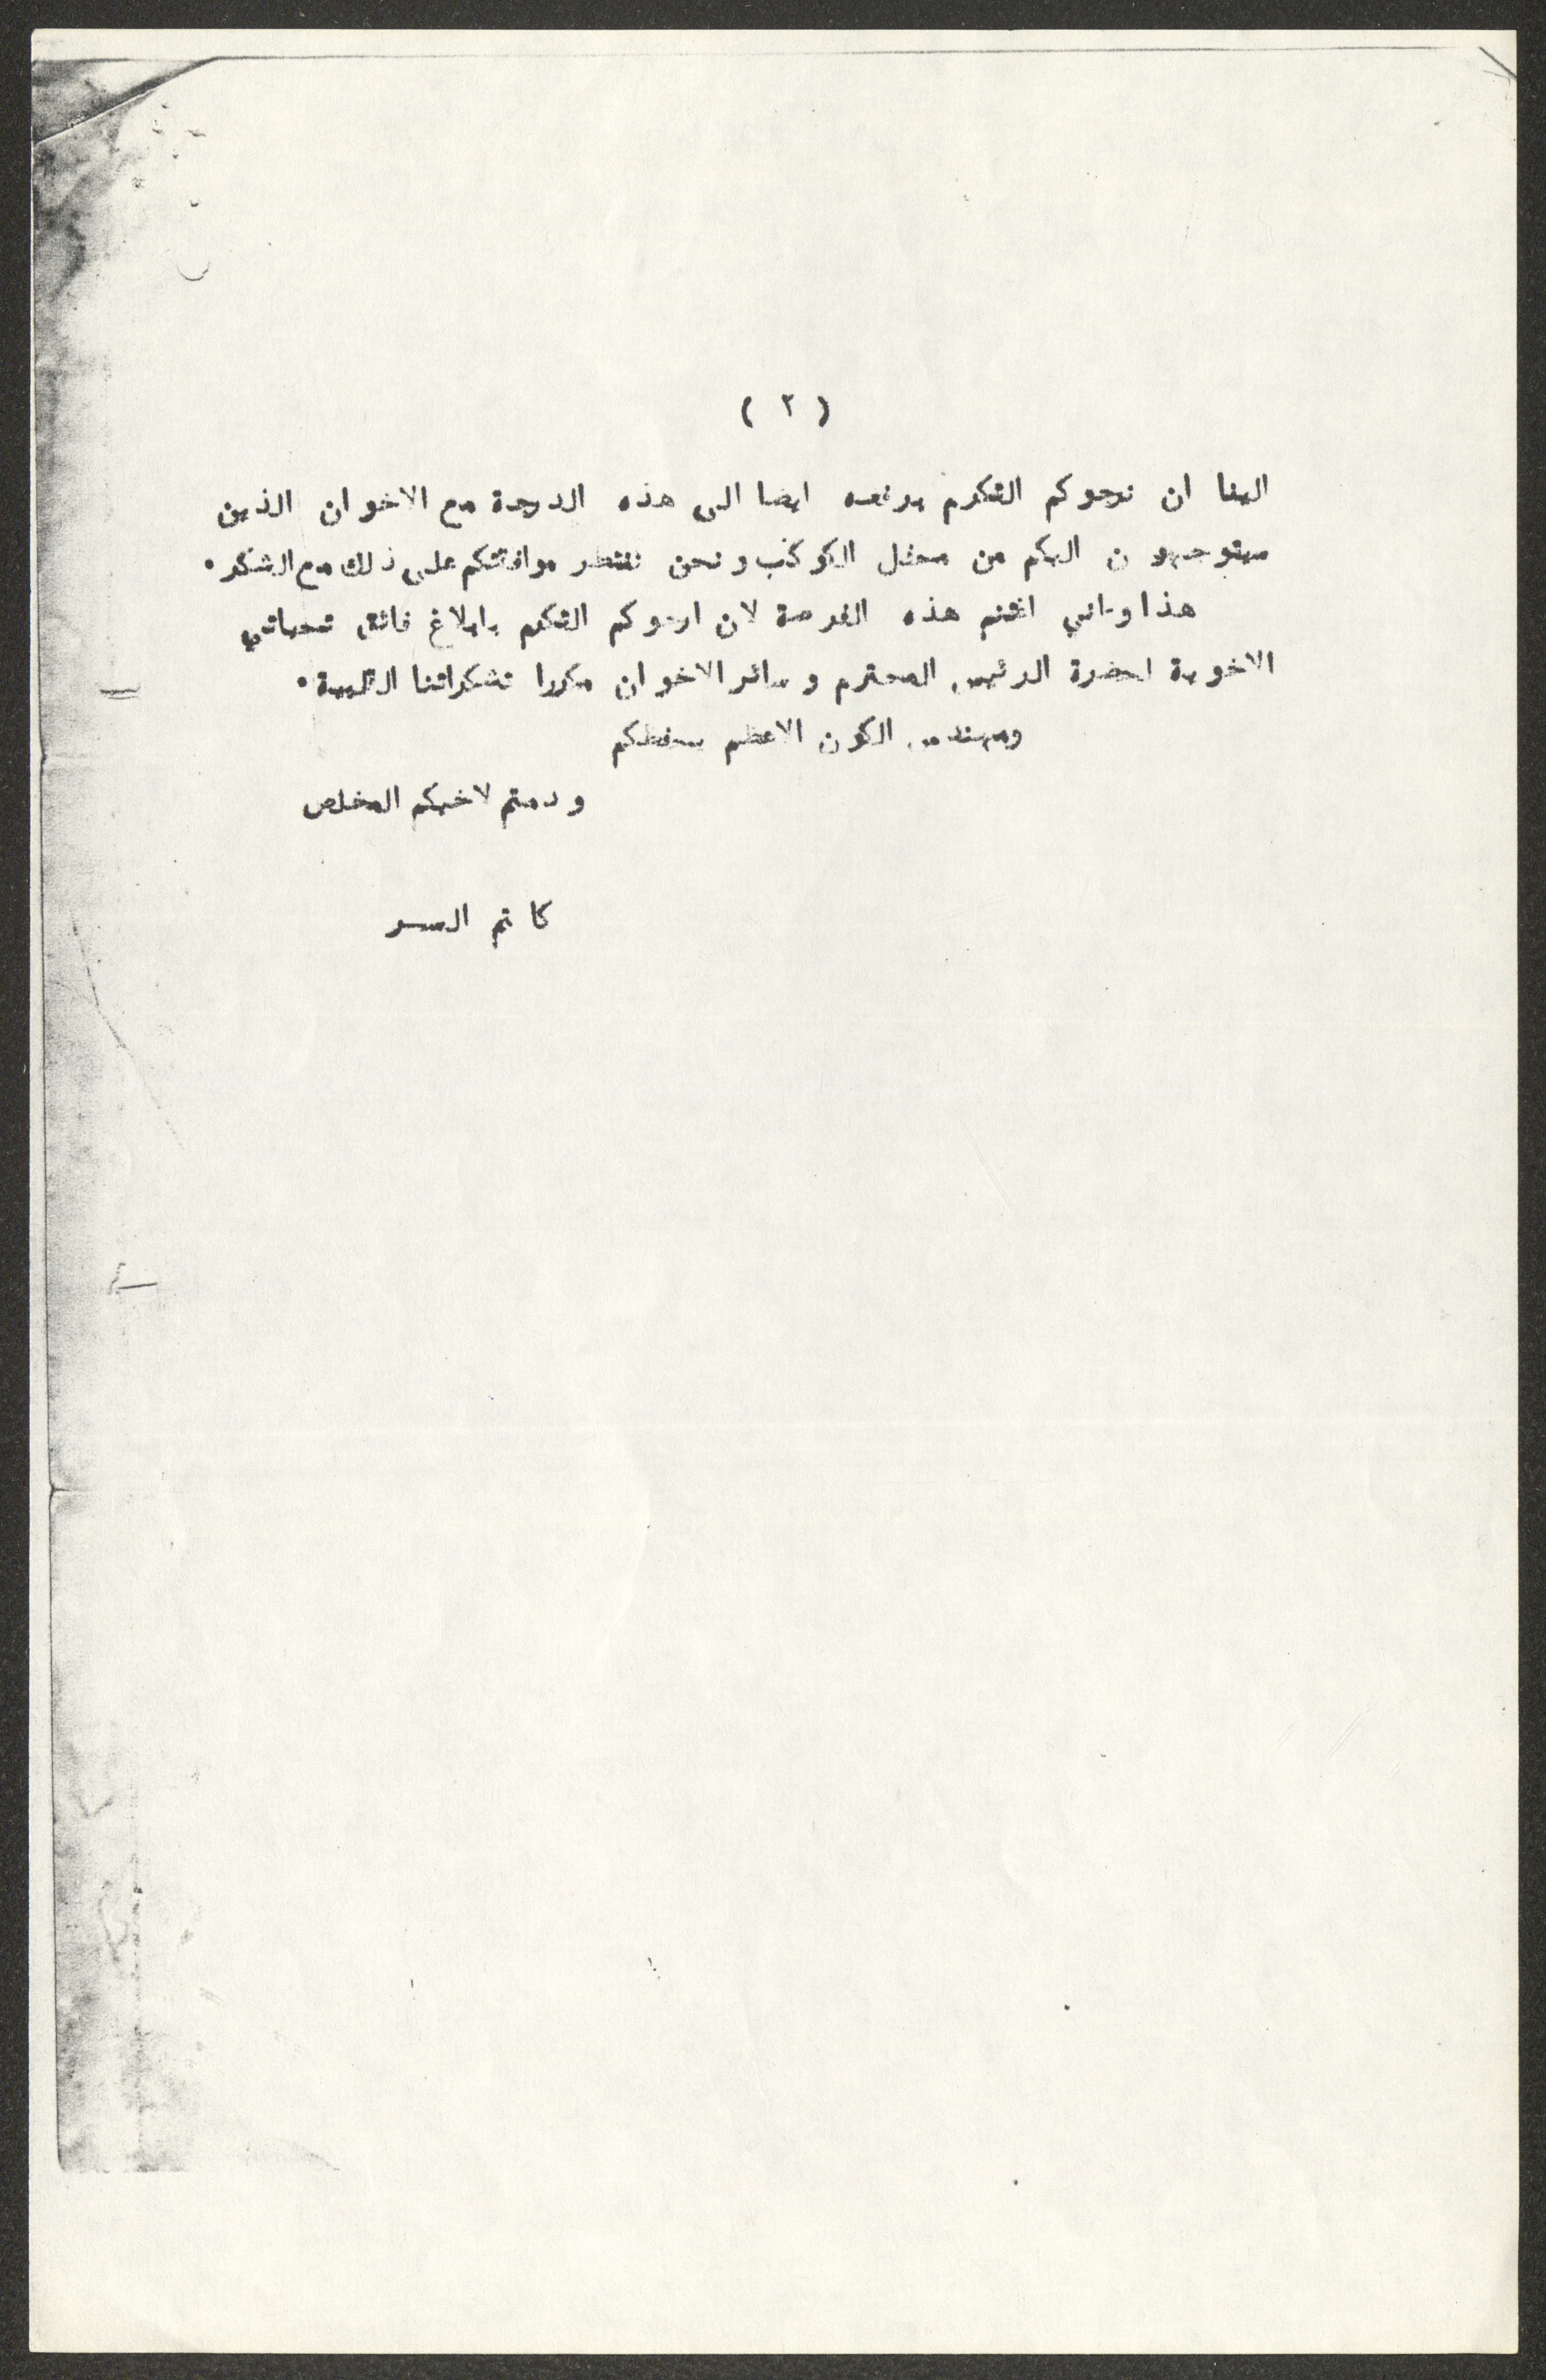 ( ٢ )
الينا ان نرجوكم التكرم برفعه ايضا الى هذه الدرجة مع الاخوان الذين
سيتوجهون اليكم من محفل الكوكب ونحن ننتظر موافقتكم على ذلك مع الشكر ٠
هذا وانني اغتنم هذه الفرصة لان ارجوكم التكرم بابلاغ فائق تحياتي
الاخوية لحضرة الرئيس المحترم وسائر الاخوان مكررا تشكراتنا القلبية ٠
ومهندس الكون الاعظم يحفظكم
ودمتم لاخيكم المخلص
كاتم السر